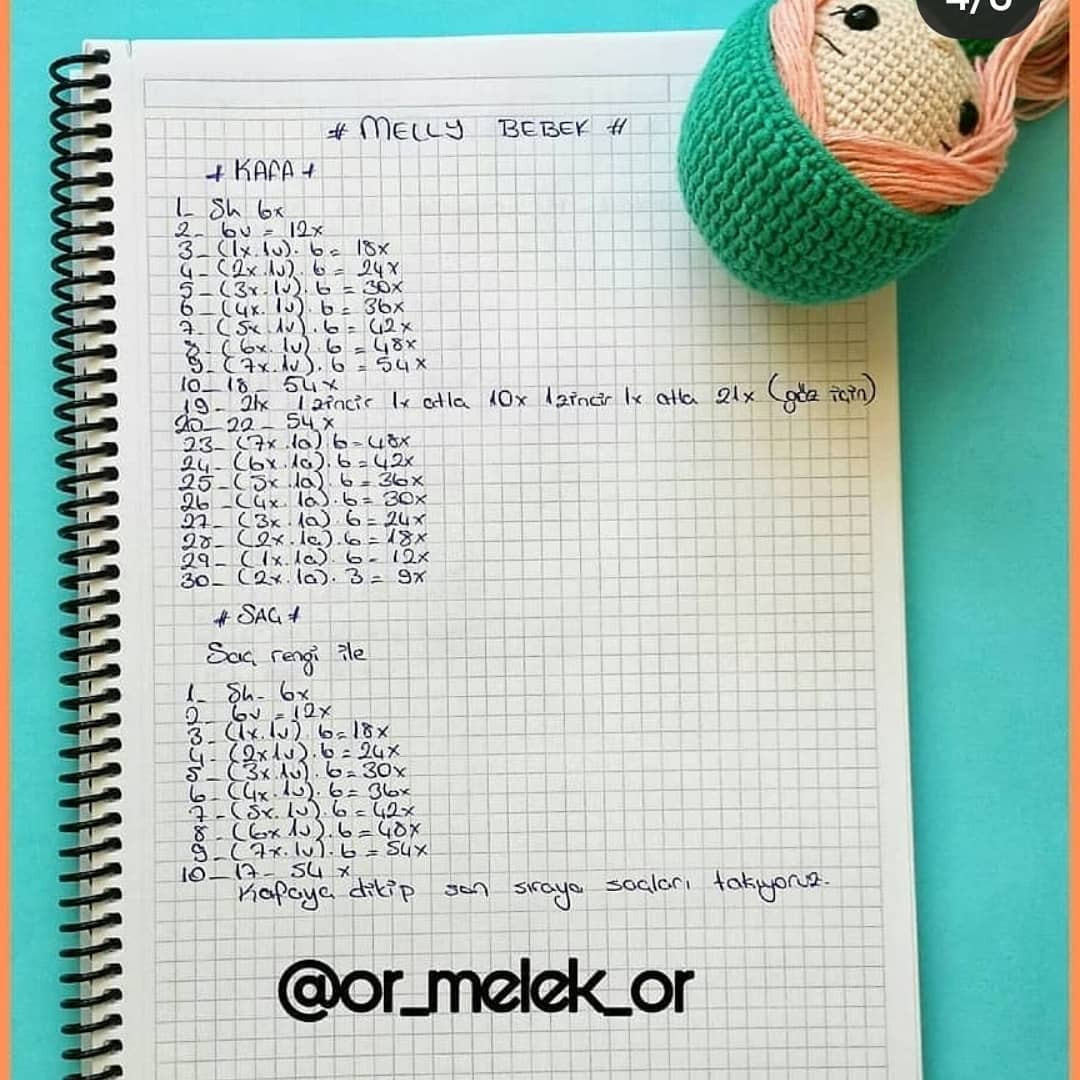 4/6
# MELLY BEBEK #
+ KAFA +
1- Sh 6x
2- 6v = 12x
3- (1x.1v). 6 = 18x
4- (2x.1v). 6 = 24x
5- (3x.1v). 6 = 30x
6- (4x.1v). 6 = 36x
7- (5x.1v). 6 = 42x
8- (6x.1v). 6 = 48x
9- (7x.1v). 6 = 54x
10-18- 54x
19- 21x 1zincir 1x atla 10x 1zincir 1x atla 21x (göz için)
20-22- 54x
23- (7x.1a) 6 = 48x
24- (6x.1a). 6 = 42x
25- (5x.1a). 6 = 36x
26- (4x.1a). 6 = 30x
27- (3x.1a) 6 = 24x
28- (2x.1a). 6 = 18x
29- (1x.1a). 6 = 12x
30- (2x.1a). 3 = 9x
# SAÇ #
Saç rengi ile
1- Sh- 6x
2- 6v = 12x
3- (1x.1v) 6 = 18x
4- (2x1v). 6 = 24x
5- (3x.1v). 6 = 30x
6- (4x.1v). 6 = 36x
7- (5x.1v). 6 = 42x
8- (6x1v). 6 = 48x
9- (7x.1v). 6 = 54x
10-17- 54 x
Kafaya dikip son sıraya saçları takıyoruz.
@or_melek_or